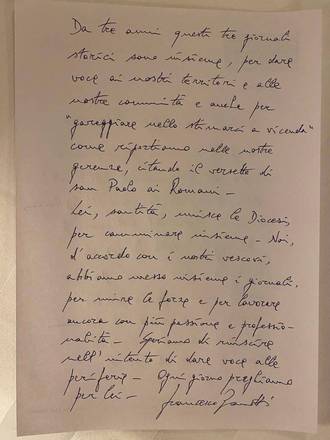 Da tre anni questi tre giornali
storici sono insieme, per dare
voce ai nostri territori e alle
nostre comunità e anche per
"gareggiare nello stimarci a vicenda"
come riportiamo nelle nostre
gerenze, citando il versetto di
san Paolo ai Romani –
Lei, santità, unisce le Diocesi,
per camminare insieme – Noi,
d'accordo con i nostri vescovi,
abbiamo messo insieme i giornali,
per unire le forze e per lavorare
ancora con più passione e professio-
nalità – Speriamo di riuscire
nell'intento di dare voce alle
periferie – Ogni giorno preghiamo
per lei – Francesco Zanotti